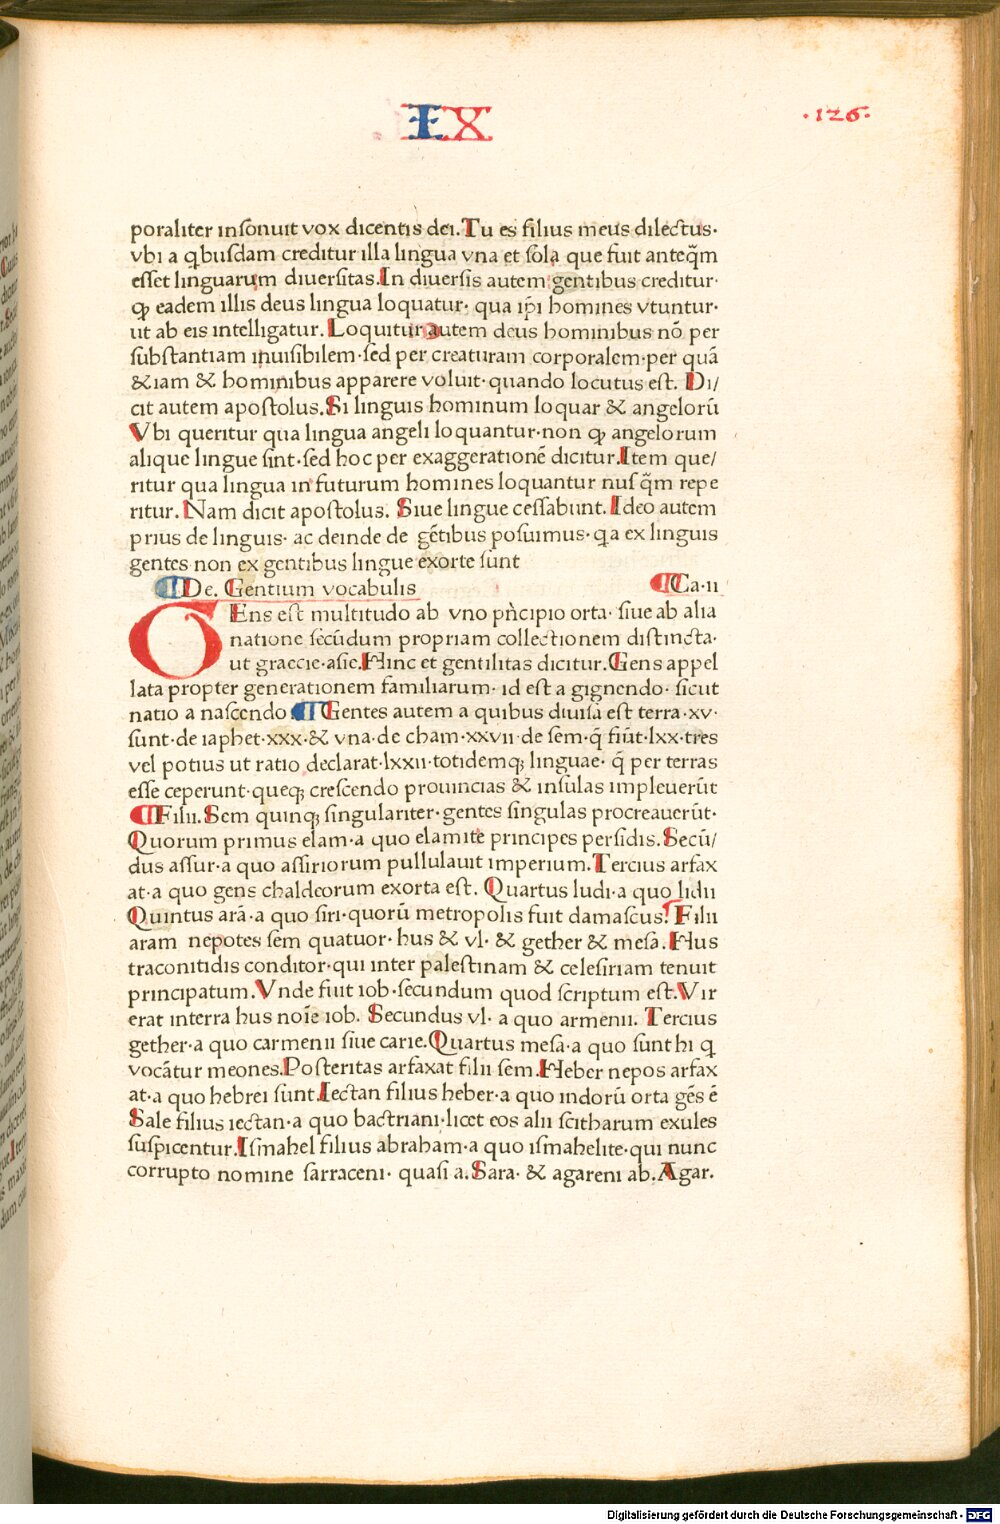 IX
·126·
poraliter inſonuit vox dicentis dei.Tu es filius meus dilectus·
vbi a qbuſdam creditur illa lingua vna et ſola que fuit anteq̃m
eſſet linguarum diuerſitas.In diuerſis autem gentibus creditur·
ꝙ eadem illis deus lingua loquatur· qua ip̃i homines vtuntur·
ut ab eis intelligatur. Loquitur autem deus hominibus nõ per
ſubſtantiam inuiſibilem·ſed per creaturam corporalem·per quã
&iam & hominibus apparere voluit·quando locutus eſt. Di/
cit autem apoſtolus.Si linguis hominum loquar & angelorũ
Vbi queritur qua lingua angeli loquantur·non ꝙ angelorum
alique lingue ſint·ſed hoc per exaggerationẽ dicitur.Item que/
ritur qua lingua in futurum homines loquantur nuſq̃m repe
ritur. Nam dicit apoſtolus. Siue lingue ceſſabunt. Ideo autem
prius de linguis· ac deinde de gẽtibus poſuimus· qa ex linguis
gentes non ex gentibus lingue exorte ſunt
¶De. Gentium vocabulis ¶Ca·ii
GEns eſt multitudo ab vno pñcipio orta· ſiue ab alia
natione ſecũdum propriam collectionem diſtincta·
ut graecie·aſie.Hinc et gentilitas dicitur.Gens appel
lata propter generationem familiarum· id eſt a gignendo· ſicut
natio a naſcendo ¶Gentes autem a quibus diuiſa eſt terra·xv·
ſunt·de iaphet·xxx·& vna·de cham·xxvii·de ſem·q̃ fiũt·lxx·tres
vel potius ut ratio declarat·lxxii·totidemqꝫ linguae· q̃ per terras
eſſe ceperunt·queqꝫ creſcendo prouincias & inſulas impleuerũt
¶Filii.Sem quinqꝫ ſingulariter·gentes ſingulas procreauerũt·
Quorum primus elam·a quo elamite principes perſidis.Secũ/
dus aſſur·a quo aſſiriorum pullulauit imperium.Tercius arfax
at·a quo gens chaldeorum exorta eſt. Quartus ludi·a quo lidii
Quintus arã·a quo ſiri·quorũ metropolis fuit damaſcus. Filii
aram nepotes ſem quatuor·hus & vl· & gether & meſa.Hus
traconitidis conditor·qui inter paleſtinam & celeſiriam tenuit
principatum.Vnde fuit iob·ſecundum quod ſcriptum eſt.Vir
erat interra hus noĩe iob. Secundus vl· a quo armenii. Tercius
gether·a quo carmenii ſiue carie.Quartus meſa·a quo ſunt hi q
vocãtur meones.Poſteritas arfaxat filii ſem.Heber nepos arfax
at·a quo hebrei ſunt.Iectan filius heber·a quo indorũ orta gẽs ẽ
Sale filius iectan·a quo bactriani·licet eos alii ſcitharum exules
ſuſpicentur.Iſmahel filius abraham·a quo iſmahelite·qui nunc
corrupto nomine ſarraceni· quaſi a.Sara· & agareni ab.Agar.
Digitalisierung gefördert durch die Deutsche Forschungsgemeinschaft - DFG